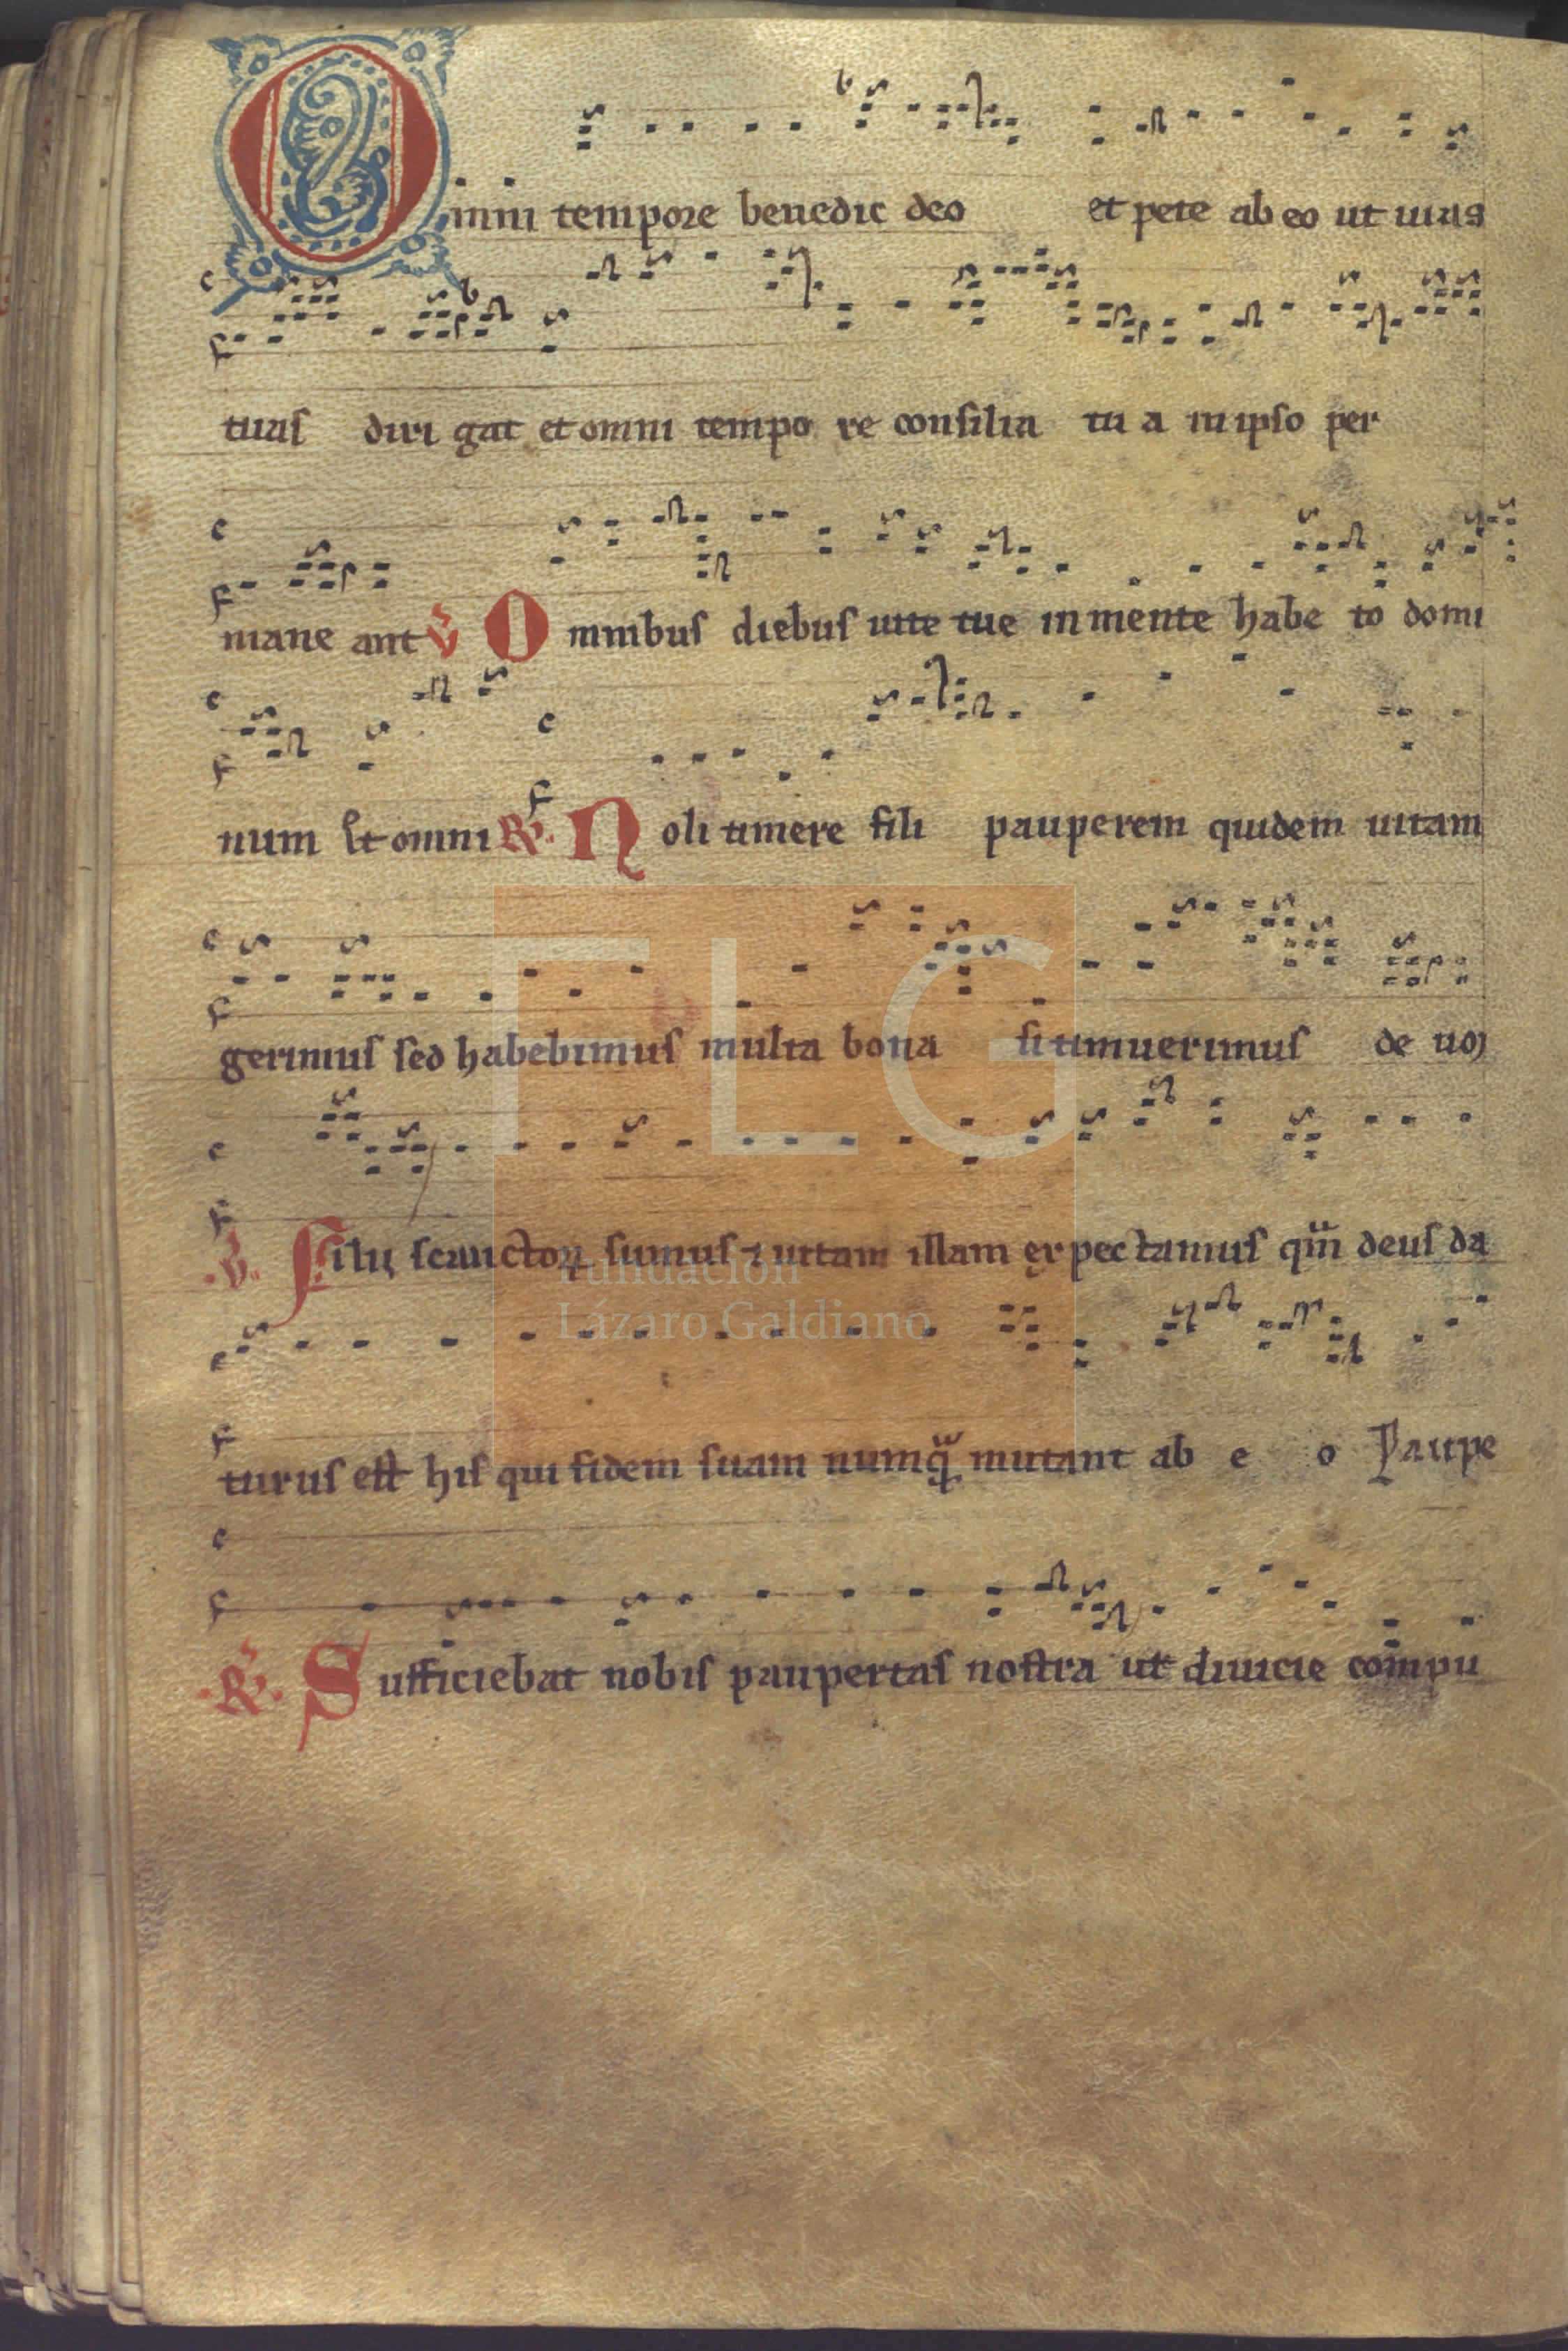 Omni tempore benedic deo et pete ab eo ut uias
tuas diri gat et omni tempo re consilia tu a in ipso per
mane ant ℣ Omnibus diebus uite tue in mente habe to domi
num Et omni ℟. Noli timere fili pauperem quidem uitam
gerimus sed habebimus multa bona si timuerimus de uȝ
℣. Filii scanctoꝝ sumus ⁊ uitam illam expectamus qm̅ deus da
turus est his qui fidem suam numq̅ mutant ab e o Paupe
℟. Sufficiebat nobis paupertas nostra ut diuicie co̅mpu
FLG
Fundación
Lázaro Galdiano